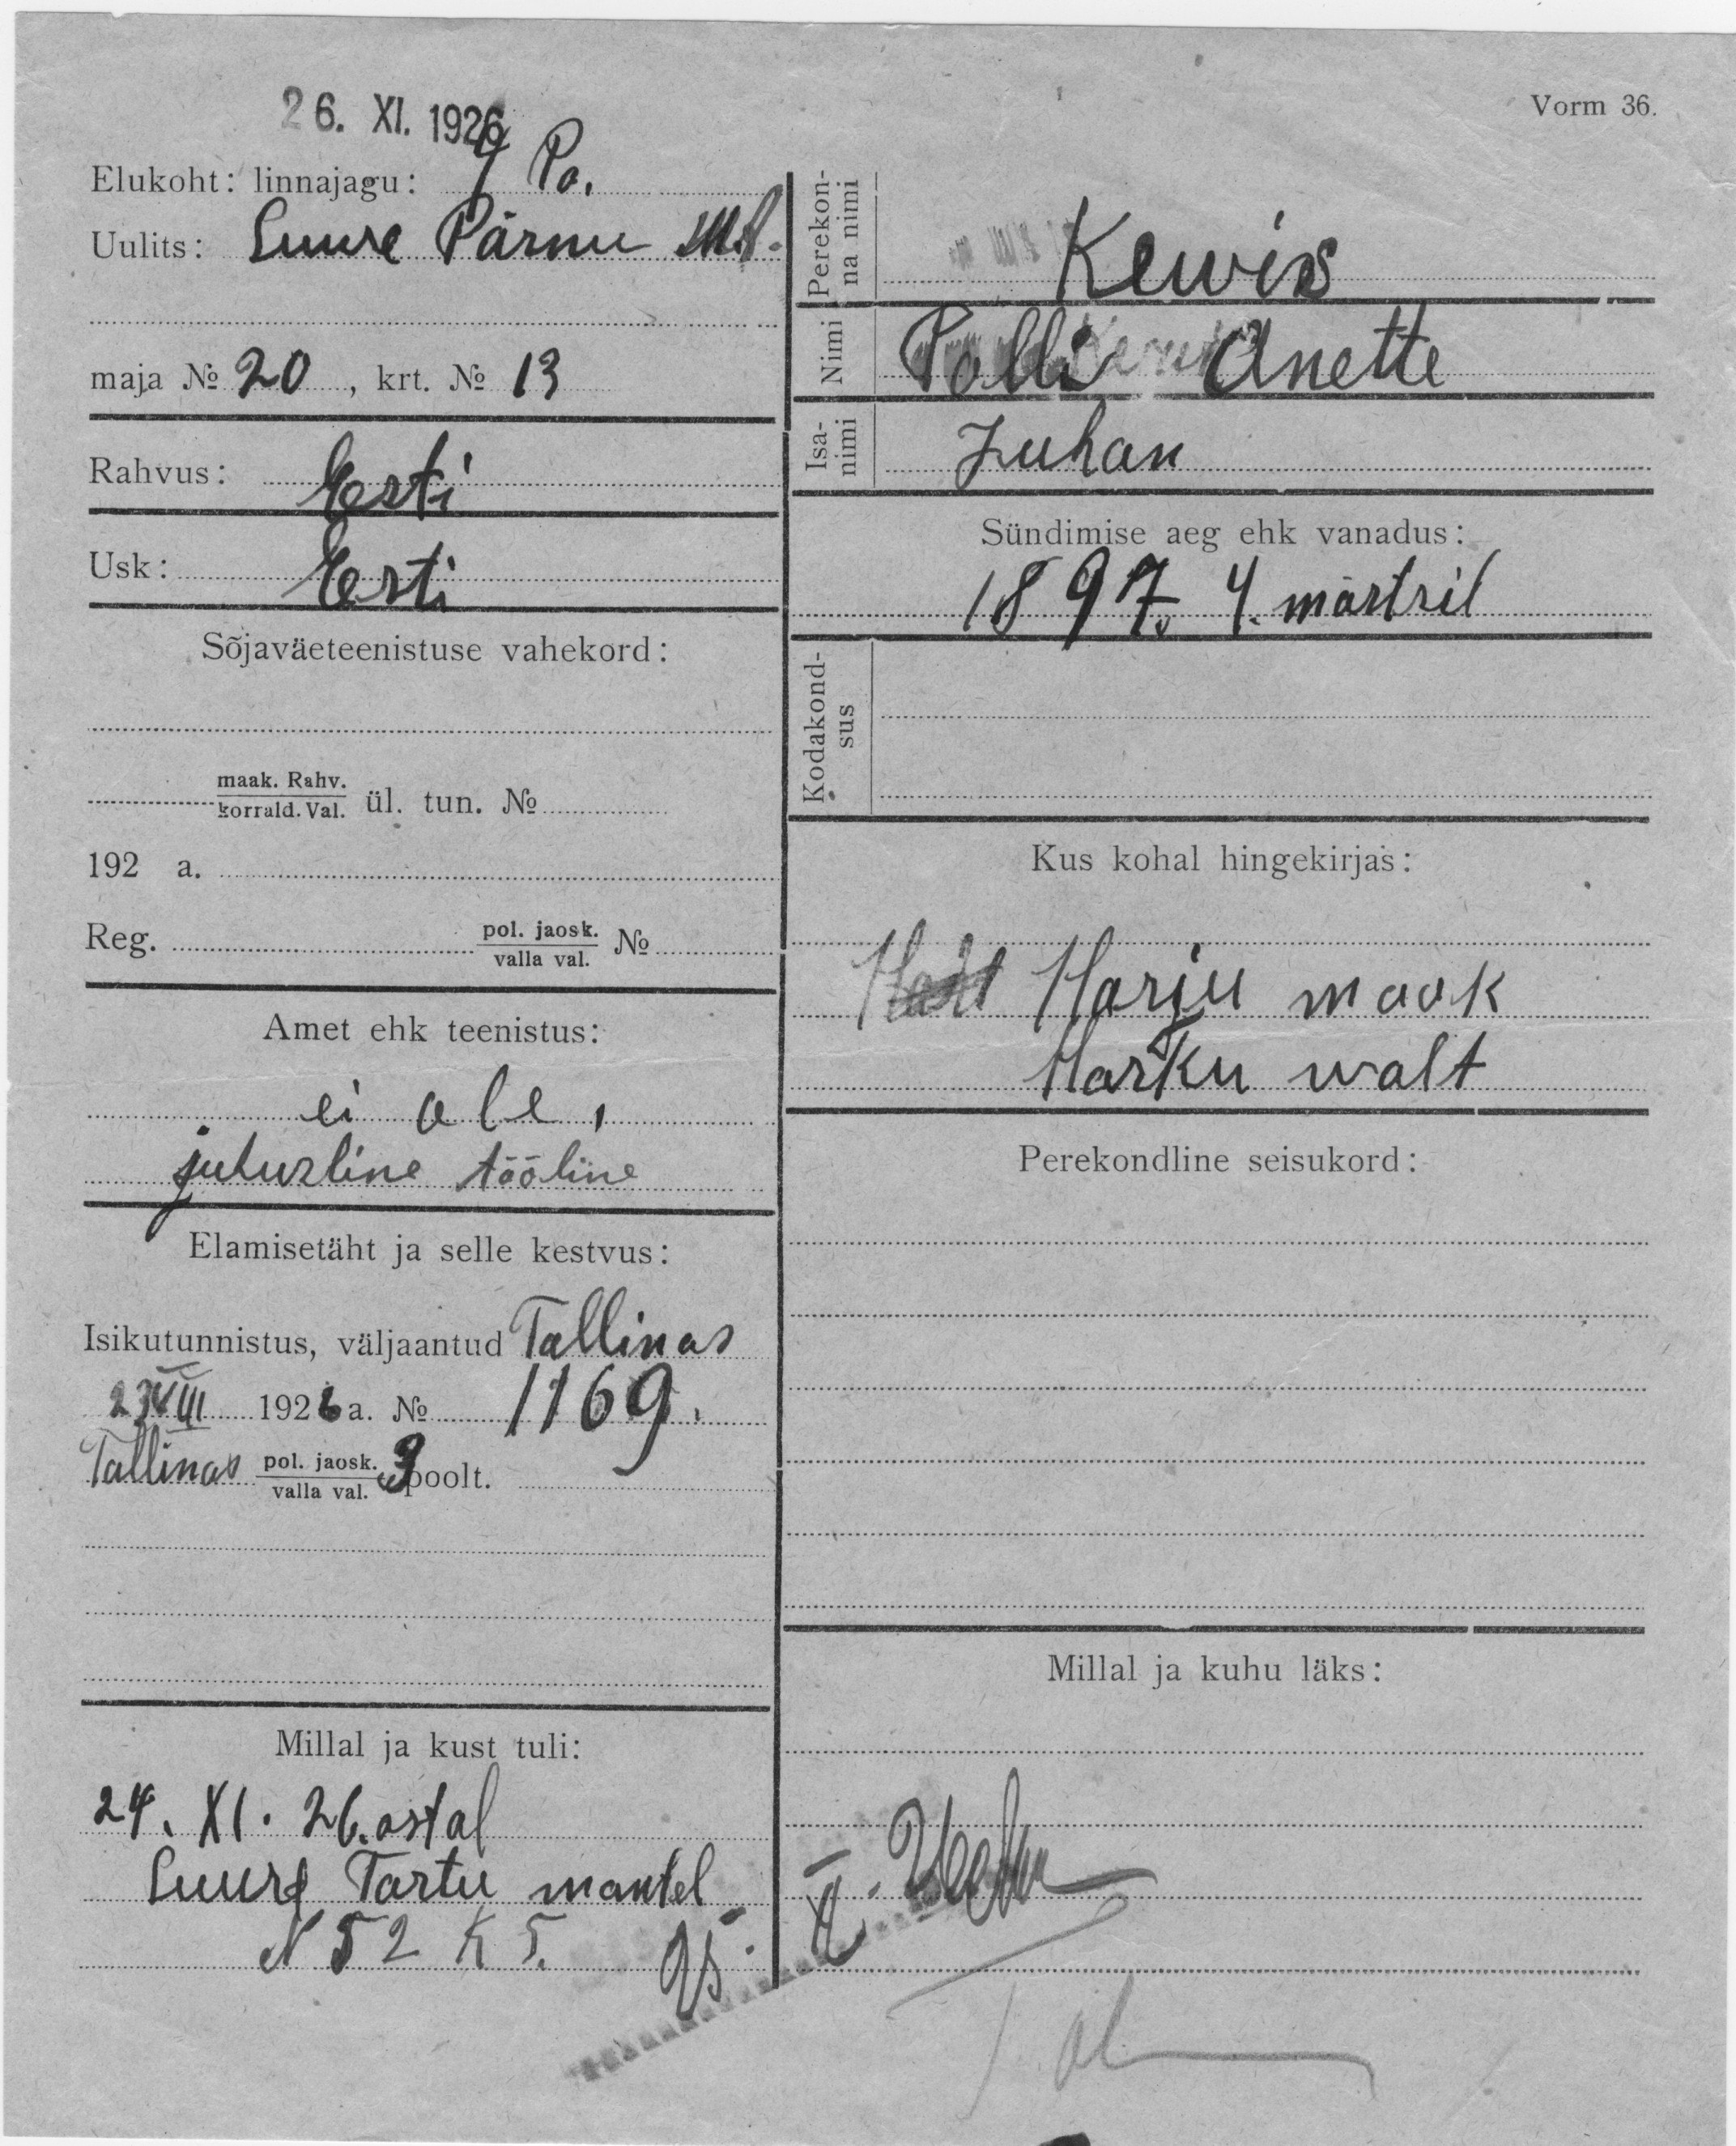 26. XI. 1926
Vorm 36.
Elukoht: linnajagu: Po.
Uulits: Suure Pärnu mt.
maja № 20, krt. № 13
Rahvus: Eesti
Usk: Eesti
Sõjaväeteenistuse vahekord:
maak. Rahv.
korrald. Val. ül. tun. №
192 a.
Reg. pol. jaosk. №
valla val.
Amet ehk teenistus:
ei ole,
juhusline tööline
Elamisetäht ja selle kestvus:
Isikutunnistus, väljaantud Tallinas
23 VIII 1926 a. № 1169.
Tallinas pol. jaosk. 3 poolt.
valla val.
Millal ja kust tuli:
24. XI. 26. astal
Suure Tartu mantel
N 52 K 5.
Perekonna nimi
Kewis
Nimi Polli Anette
Isanimi Juhan
Sündimise aeg ehk vanadus:
1897. 4. märtsil
Kodakondsus
Kus kohal hingekirjas:
Harju maak
Harku walt
Perekondline seisukord:
Millal ja kuhu läks: